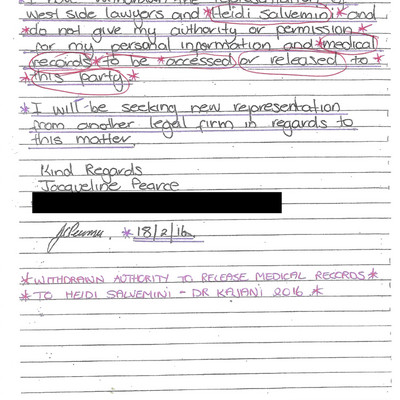 west side lawyers and *Heidi Salvemini* and
*do not give my authority or permission*
for my personal information and *medical
records* to be *accessed or released to*
*this party*
*I will be seeking new representation
from another legal firm in regards to
this matter.
Kind Regards
Jacqueline Pearce
*18/2/16.
*WITHDRAWN AUTHORITY TO RELEASE MEDICAL RECORDS*
*TO HEIDI SALVEMINI - DR KAJANI 2016.*